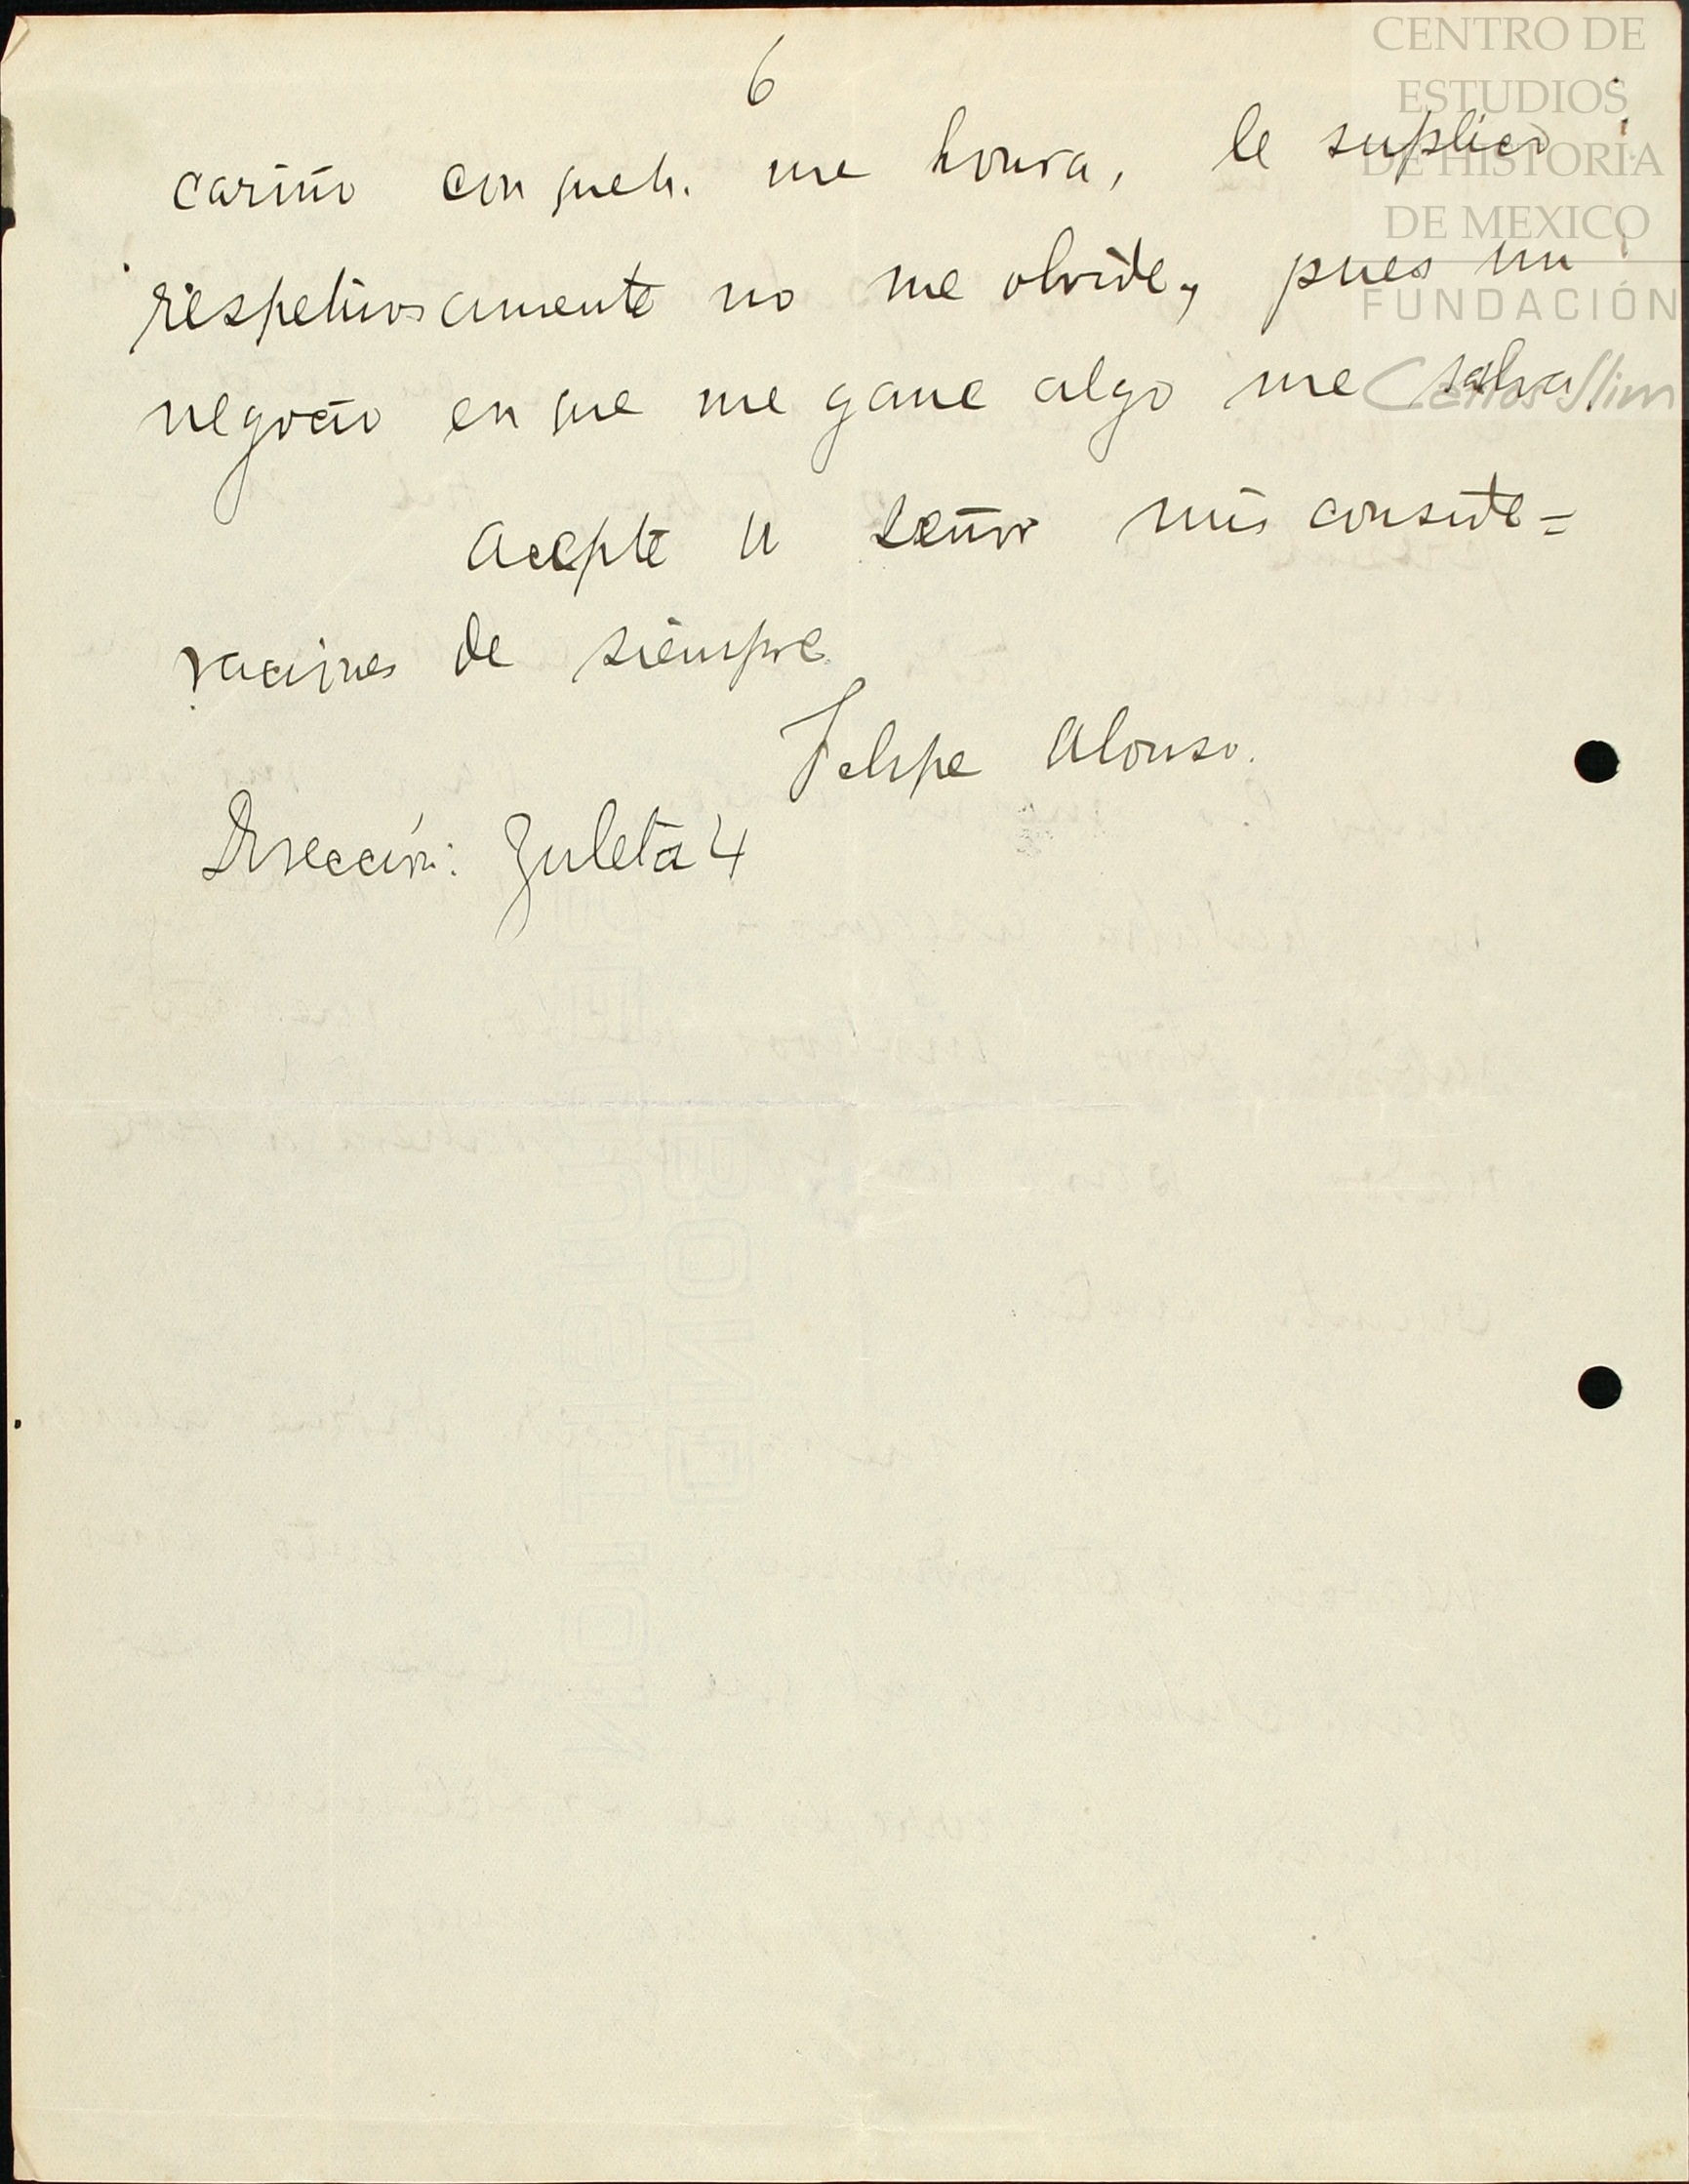 6
CENTRO DE
ESTUDIOS
DE HISTORIA
DE MEXICO
FUNDACIÓN
Carlos Slim
cariño con que U. me honra, le suplico
respetuosamente no me olvide, pues un
negocio en que me gane algo me salva.
Acepte U señor mis conside=
raciones de siempre
Felipe Alonso.
Dirección: Zuleta 4